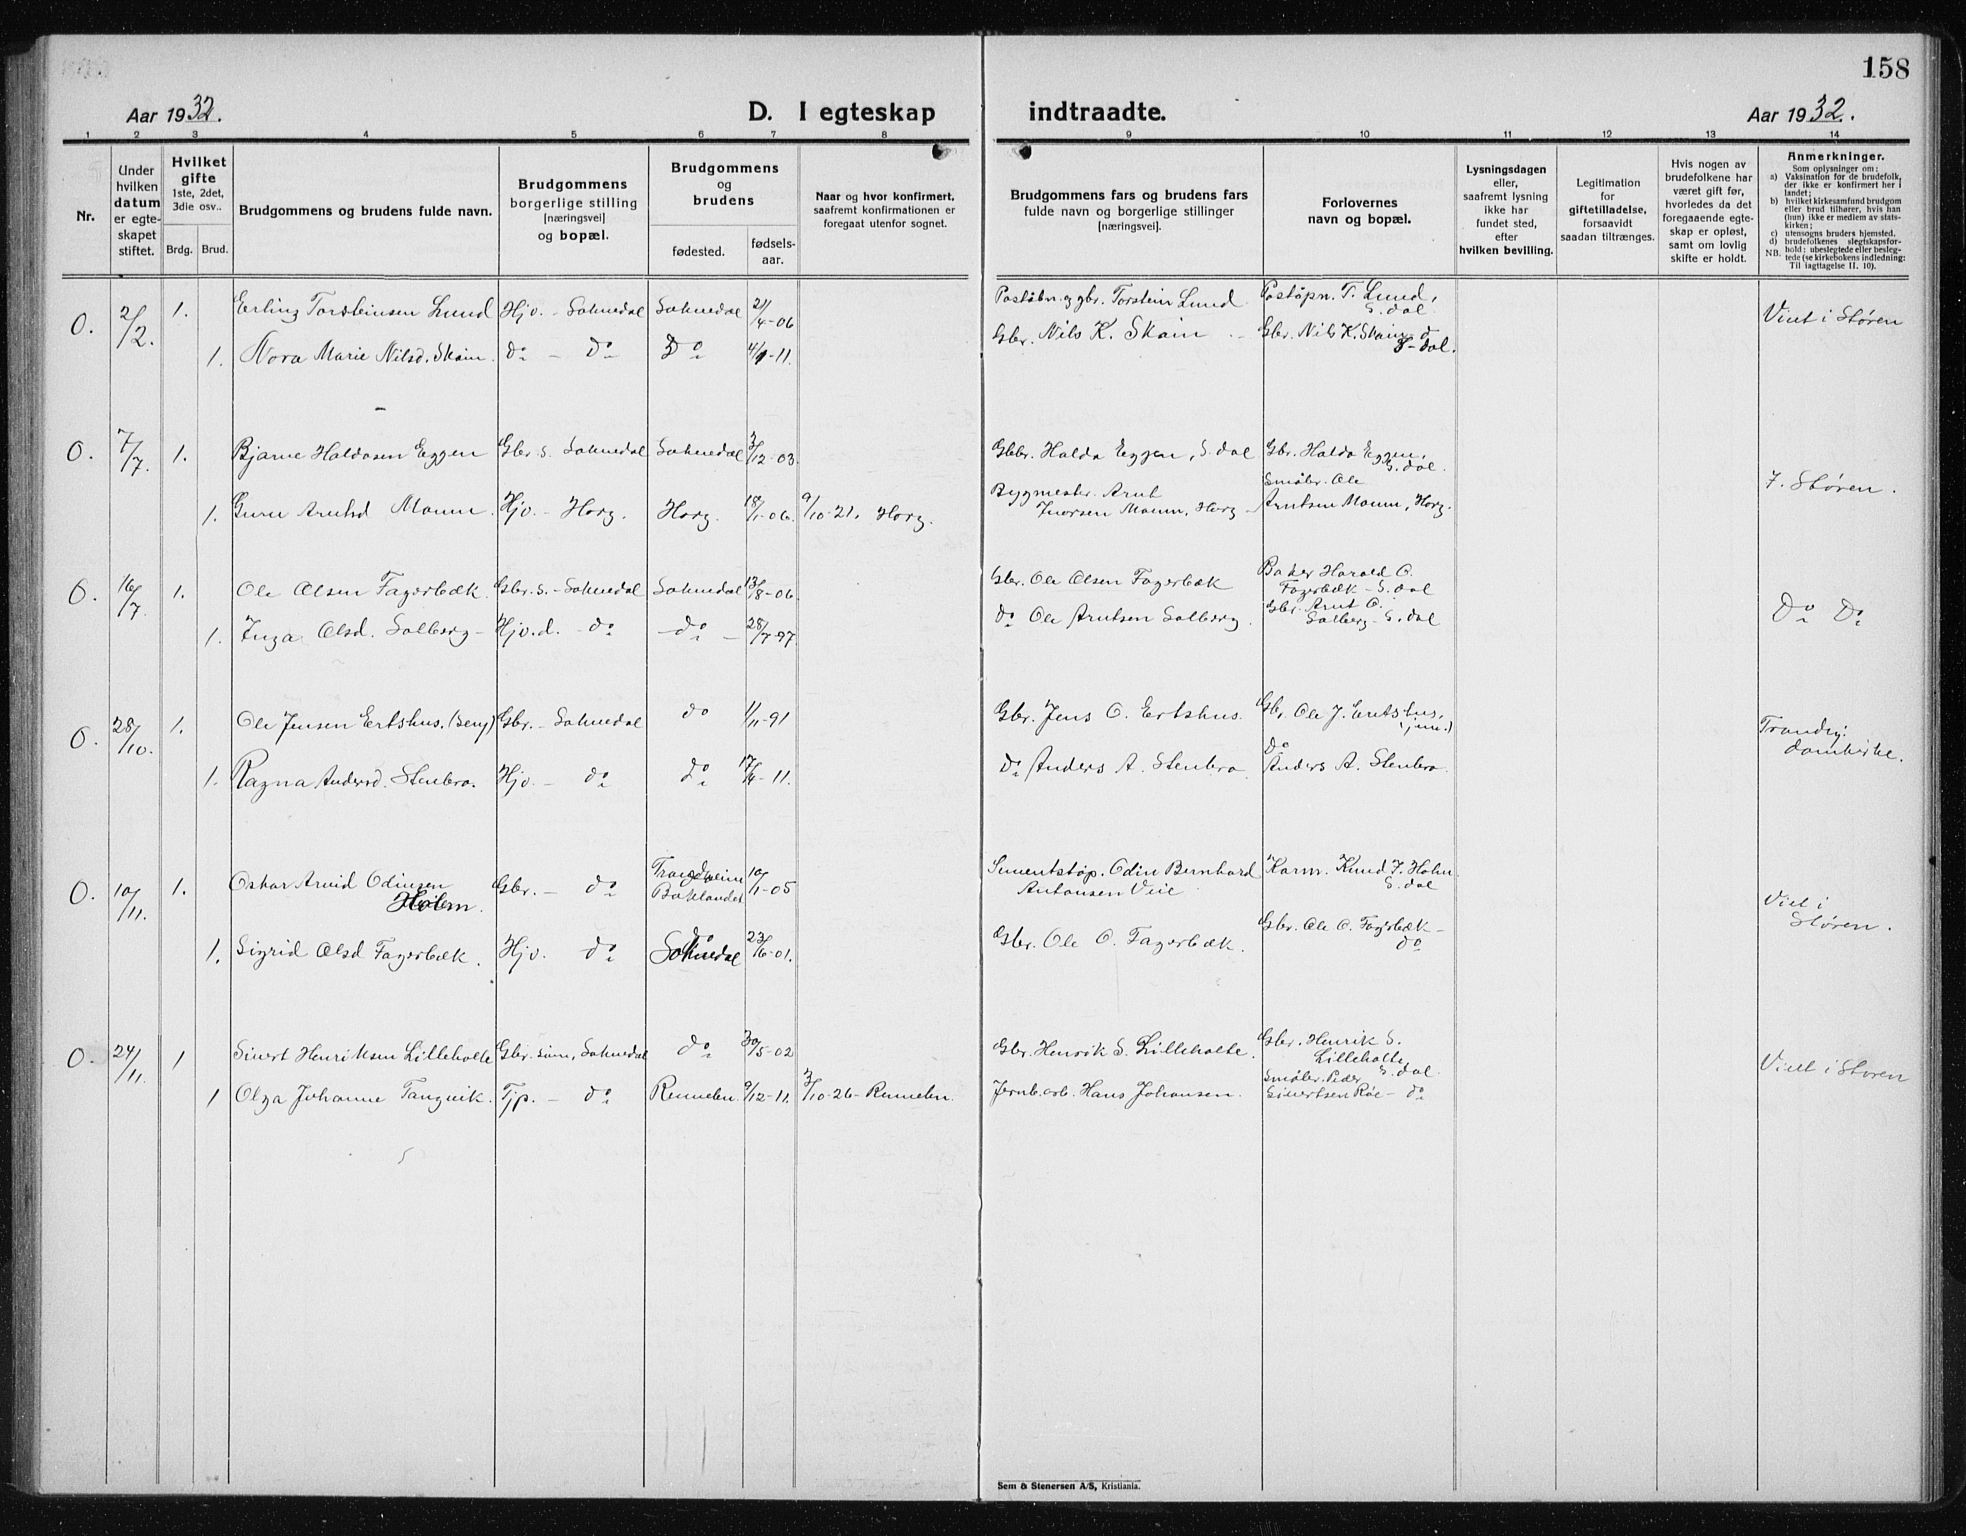 158
Aar 1932.
D. I egteskap indtraadte.
Aar 1932.
1 2 3 4 5 6 7 8 9 10 11 12 13 14
Nr.
Under hvilken datum er egte-skapet stiftet.
Hvilket gifte 1ste, 2det, 3die osv..
Brdg. Brud.
Brudgommens og brudens fulde navn.
Brudgommens borgerlige stilling [næringsvei] og bopæl.
Brudgommens og brudens
fødested.
fødsels-aar.
Naar og hvor konfirmert, saafremt konfirmationen er foregaat utenfor sognet.
Brudgommens fars og brudens fars fulde navn og borgerlige stillinger [næringsvei].
Forlovernes navn og bopæl.
Lysningsdagen eller, saafremt lysning ikke har fundet sted, efter hvilken bevilling.
Legitimation for giftetilladelse, forsaavidt saadan tiltrænges.
Hvis nogen av brudefolkene har været gift før, hvorledes da det foregaaende egte-skap er opløst, samt om lovlig skifte er holdt.
Anmerkninger.
Som oplysninger om:
a) Vaksination for de brudefolk, der ikke er konfirmert her i landet;
b) hvilket kirkesamfund brudgom eller brud tilhører, hvis han (hun) ikke er medlem av stats-kirken;
c) utensogns bruders hjemsted.
d) brudefolkenes slegtskapsfor-hold: ubeslegtede eller besleg-tede (se kirkebokens indledning:
NB. Til iagttagelse II. 10).
0. 2/2. 1. Erling Torsteinsen Lund Hjv. - Soknedal Soknedal 21/4-06 Poståbn. og gbr. Torstein Lund Postöpn. T. Lund, S.dal. Viet i Støren
1. Nora Marie Nilsd. Skain. do - do Do 4/1-11. Gbr. Nils K. Skain - Gbr. Nils K. Skain S-dal.
0. 7/7. 1. Bjarne Haldosen Eggen Gbr. s. Soknedal Soknedal 3/12-03 Gbr. Haldo Eggen, S.dal Gbr. Haldo Eggen, S.dal.
1. Guru Arntsd Moum. Hjv. - Horg. Horg. 18/1-06. 9/10-21. Horg. Bygmester Arnt Ivorsen Moum, Horg - Småbr. Ole Arntsen Moum, Horg. I. Støren.
0. 16/7. 1. Ole Olsen Fagerbæk. Gbr. s. - Soknedal Soknedal 13/8-06. Gbr. Ole Olsen Fagerbæk Baker Harald O. Fagerbæk - S.dal
1. Inga Olsd. Solberg - Hjv. d. - do - do - 28/7-97. do Ole Arntsen Solberg. Gbr. Arnt O. Solberg - S.dal Do Do
0. 28/10. 1. Ole Jensen Ertshus. (Seny) Gbr. - Soknedal do 1/11-91 Gbr. Jens O. Ertshus. Gbr. Ole J. Ertshus, (jun.) Trondhj: domkirke.
1. Ragna Andersd. Stenbro. Hjv. - do do 17/4-11. do Anders A. Stenbro do Anders A. Stenbro.
0. 10/11. 1. Oskar Arvid Odinsen Holem. Gbr. - do Trondheim Baklandet 10/1-05 Sementstøp. Odin Bernhard Antonsen Viie Karm. Knud J. Holm S.dal Viet i Støren.
1. Sigrid Olsd Fagerbæk. Hjv. do Soknedal 23/6-01. Gbr. Ole O. Fagerbæk. Gbr. Ole O. Fagerbæk - do
0. 24/11. 1 Sivert Henriksen Lilleholte Gbr. sønn, Soknedal do 30/5-02 Gbr. Henrik S. Lilleholte. Gbr. Henrik S. Lilleholte S.dal. Viet i Støren
1 Olga Johanne Tangvik. Tjp. - do Rennebu. 9/12-11. 3/10-26 - Rennebu. Jernb.arb. Hans Johansen. Småbr. Peder Sivertsen Röe - do
Sem & Stenersen A/S, Kristiania.